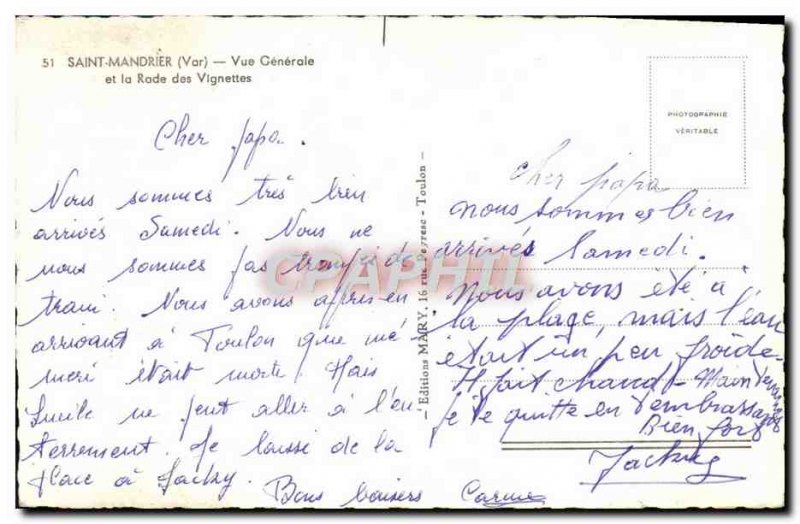 51 SAINT-MANDRIER (Var) — Vue Générale
et la Rade des Vignettes
Cher papa.
Nous sommes très bien
arrivés Samedi. Nous ne
nous sommes pas trompés de
train. Nous avons appris en
arrivant à Toulon que mé
méré était morte. Mais
Lucile ne peut aller à l'en
terrement. Je laisse de la
place à Jacky.
Bons baisers Carine
— Editions MARY, 16 rue Peyresc - Toulon —
PHOTOGRAPHIE
VÉRITABLE
Cher papa
nous sommes bien
arrivés Samedi.
Nous avons été à
la plage, mais l'eau
était un peu froide
Il fait chaud - Maintenant
je te quitte en t'embrassant
Bien fort
Jacky
CPAPHIL